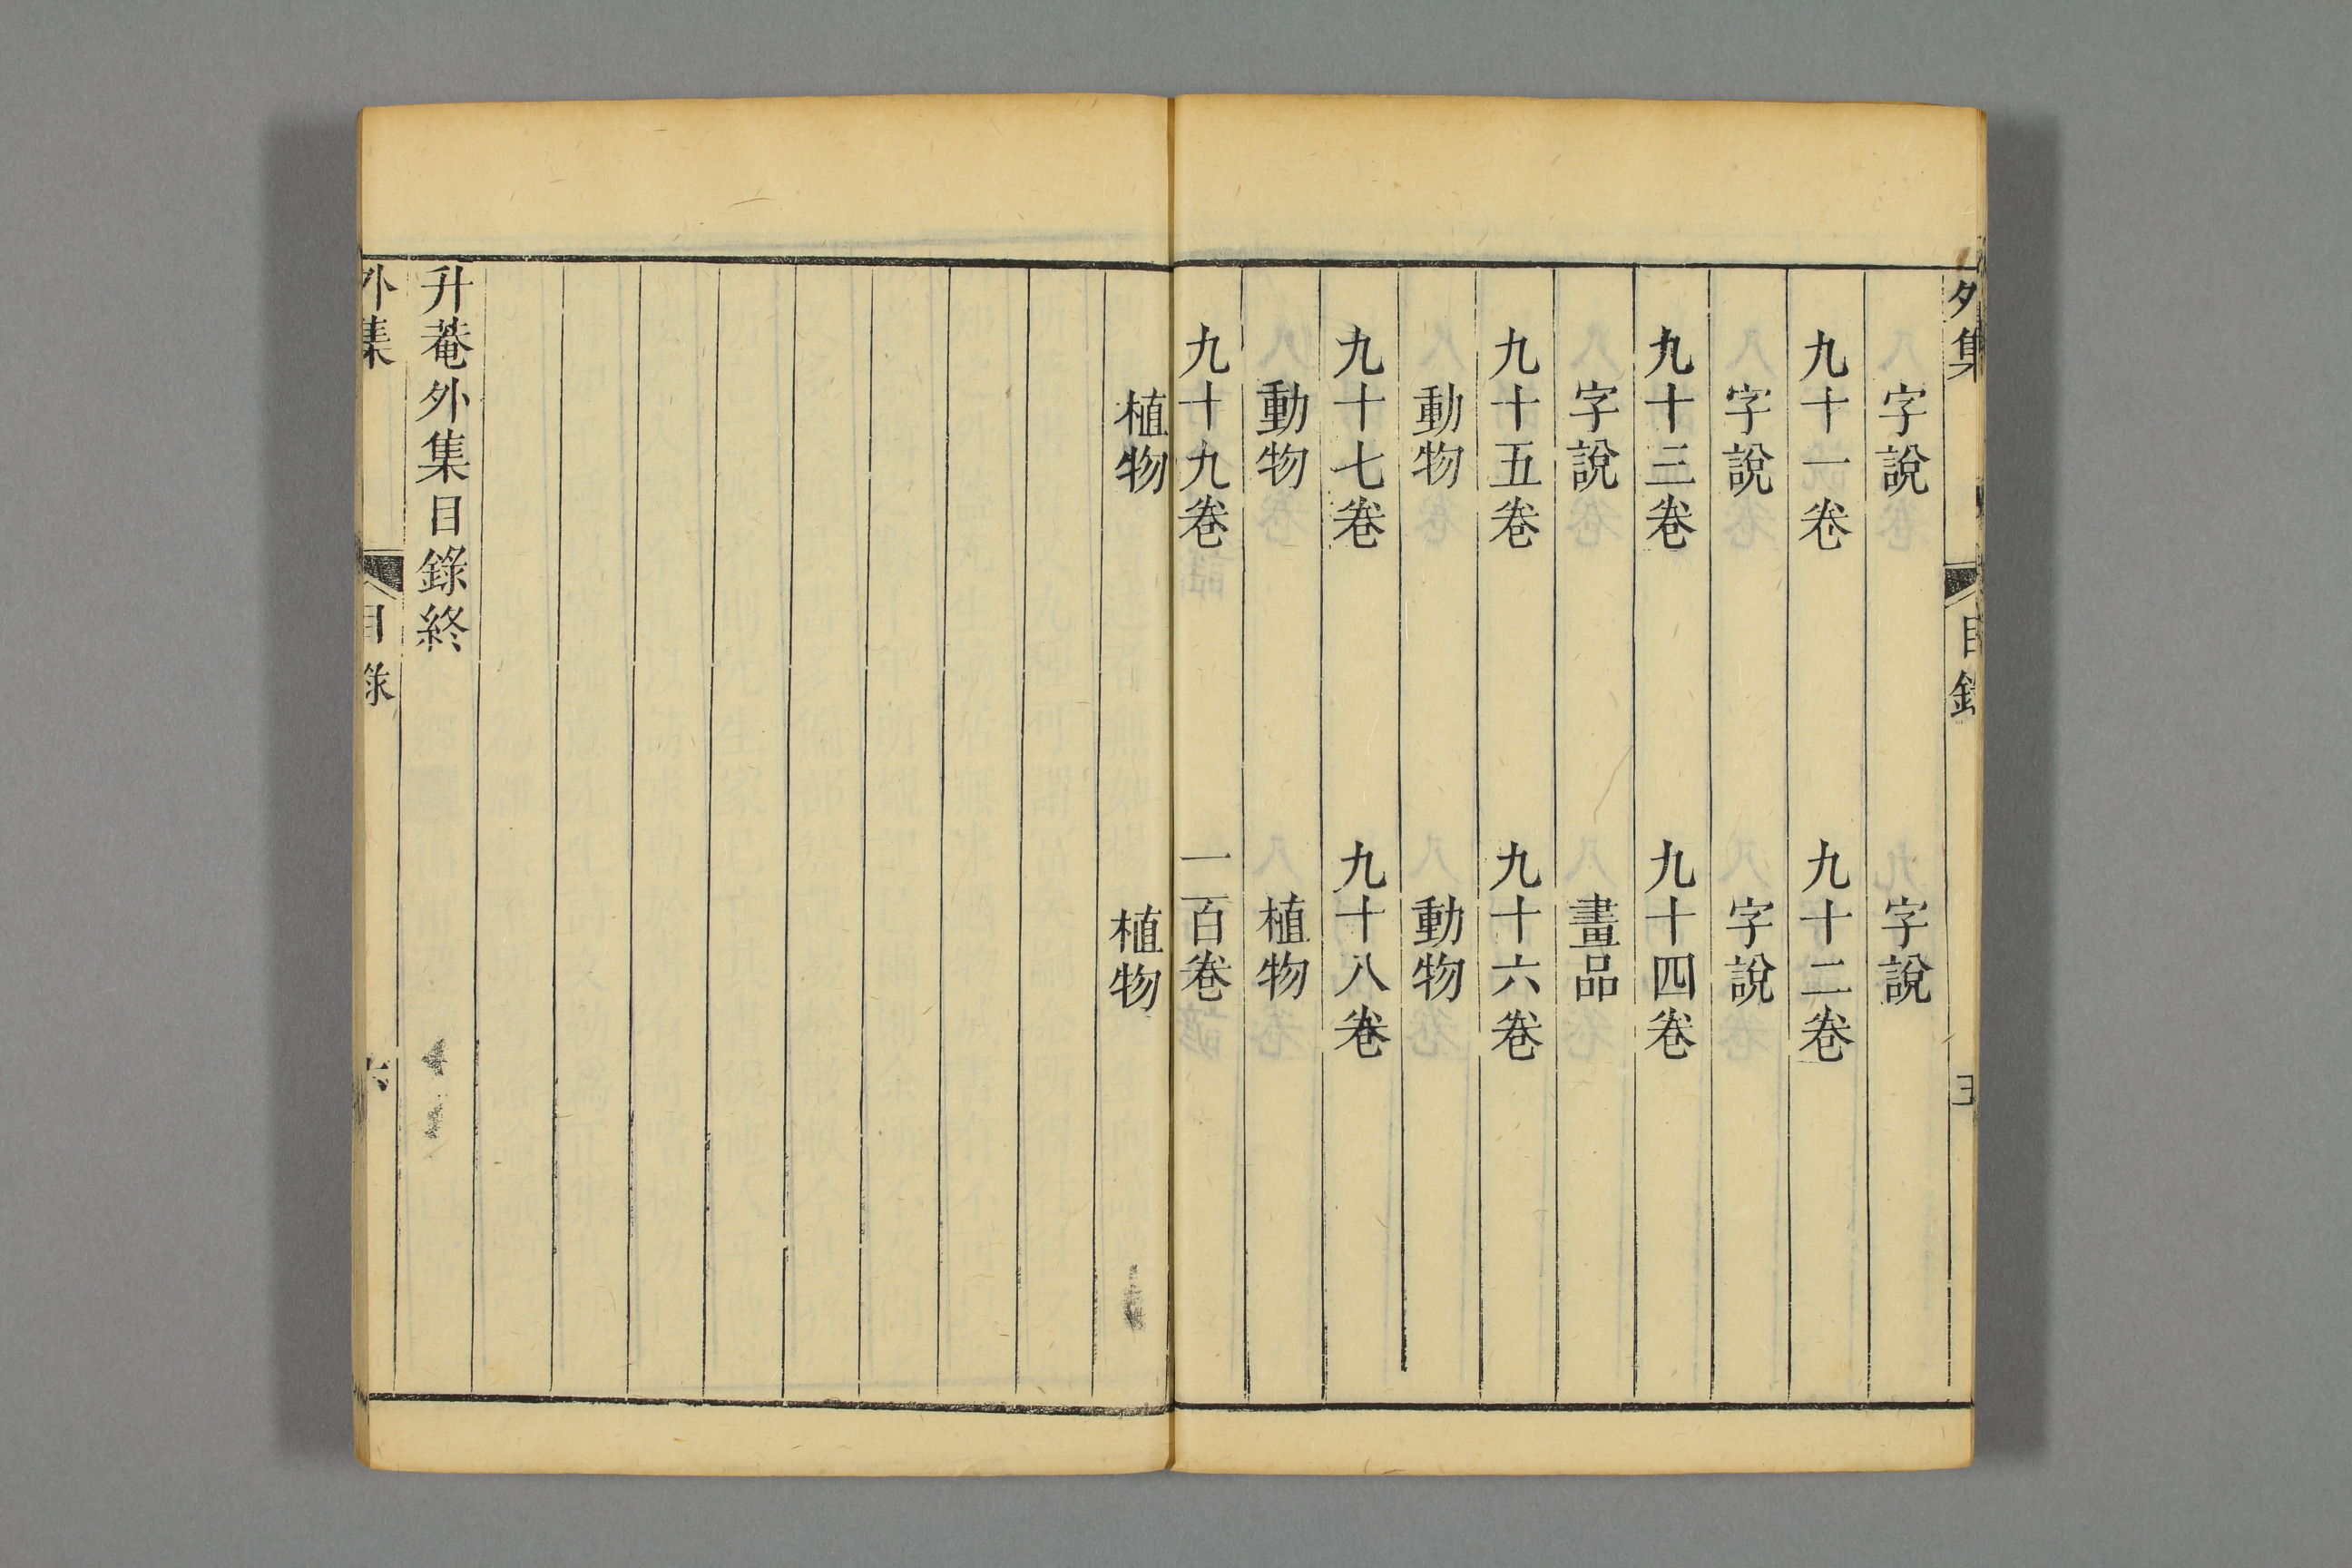 外集 目錄 五
字說 字說
九十一卷 九十二卷
字說 字說
九十三卷 九十四卷
字說 畫品
九十五卷 九十六卷
動物 動物
九十七卷 九十八卷
動物 植物
九十九卷 一百卷
植物 植物
升菴外集目錄終
外集 目錄 六